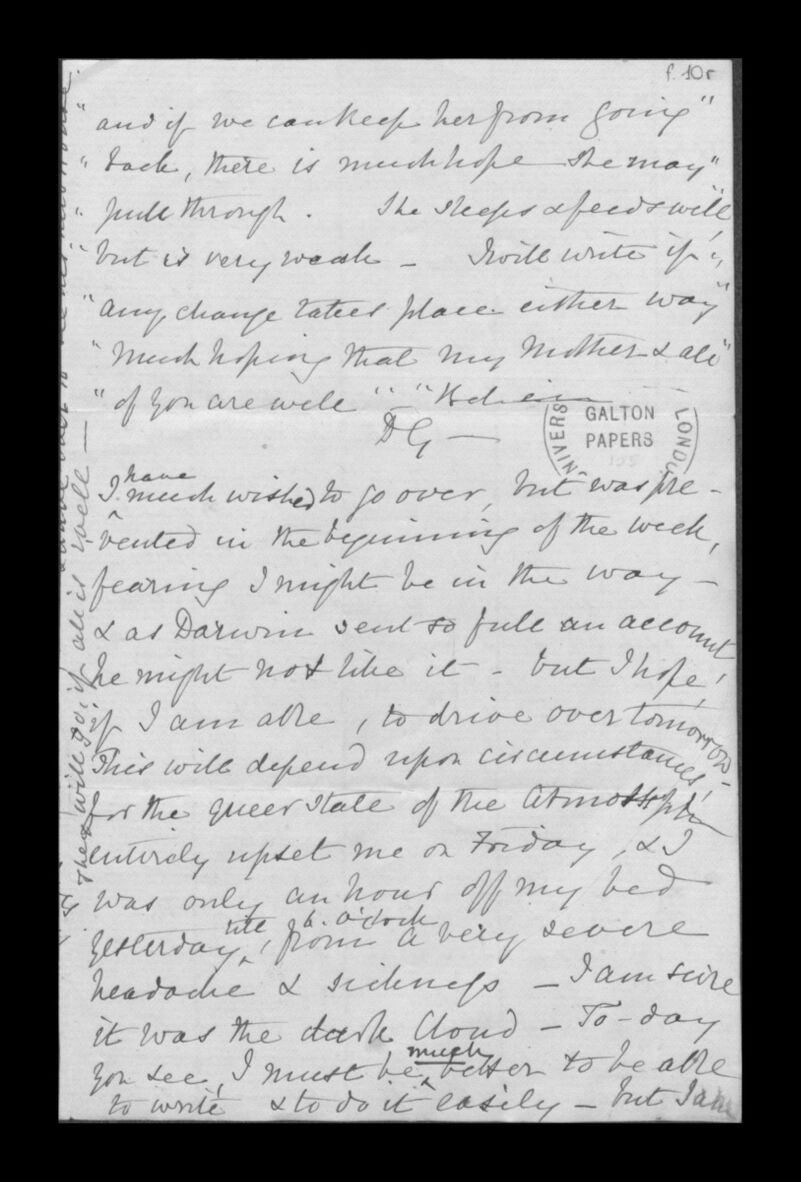 f. 10r
" and if we can keep her from going "
" back, there is much hope she may "
" pull through. She sleeps & feeds well "
" but is very weak — I will write if "
" any change takes place either way "
" Much hoping that my Mother & all "
" of you are well " — "
D G —
GALTON PAPERS
UNIVERS LONDO
I have much wished to go over, but was pre-
vented in the beginning of the week,
fearing I might be in the way —
& as Darwin sent so full an account,
he might not like it - but I hope,
if I am able, to drive over tomorrow -
This will depend upon circumstances,
for the queer state of the Atmosphe
entirely upset me on Friday, & I
was only an hour off my bed
yesterday till 6. o'clock, from a very severe
headache & sickness — I am sure
it was the dark Cloud — To-day
you see, I must be much better to be able
to write & to do it easily — but I am
will go, if all is well —